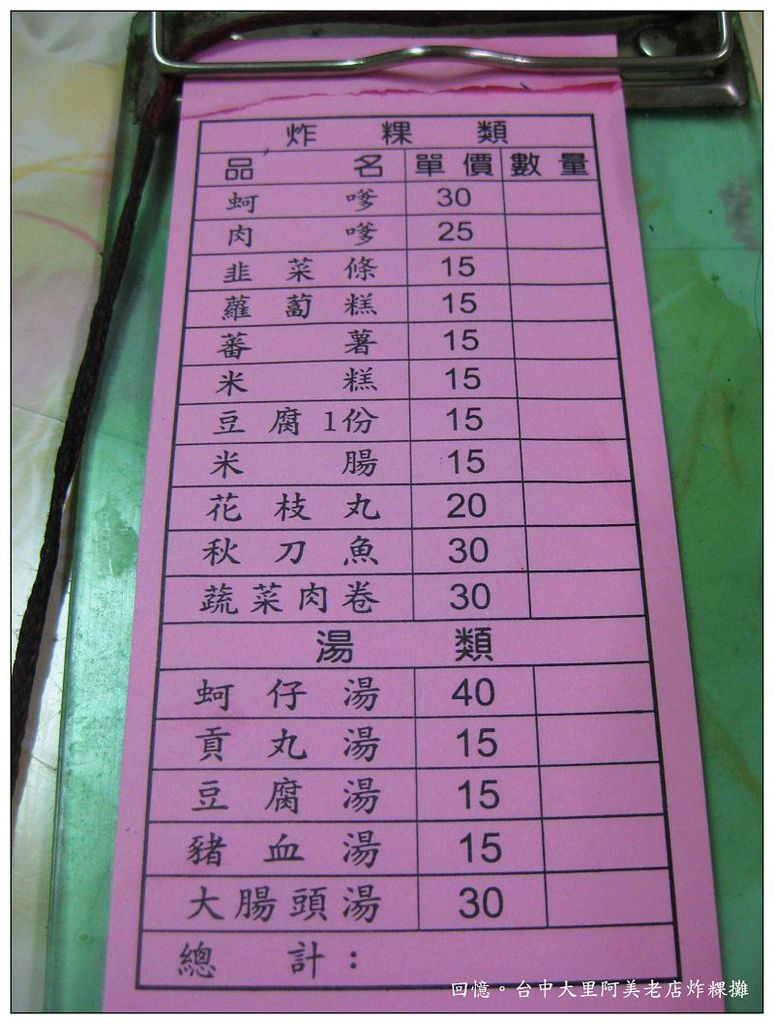 炸粿類
品名 單價 數量
蚵嗲 30
肉嗲 25
韭菜條 15
蘿蔔糕 15
蕃薯 15
米糕 15
豆腐1份 15
米腸 15
花枝丸 20
秋刀魚 30
蔬菜肉卷 30
湯類
蚵仔湯 40
貢丸湯 15
豆腐湯 15
豬血湯 15
大腸頭湯 30
總計：
回憶。台中大里阿美老店炸粿攤